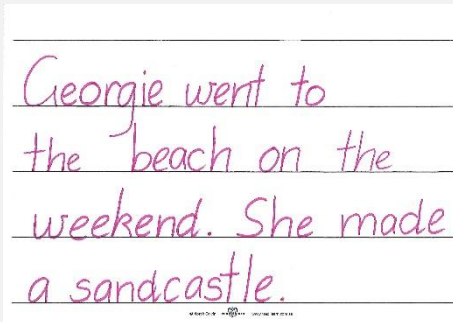 Georgie went to
the beach on the
weekend. She made
a sandcastle.